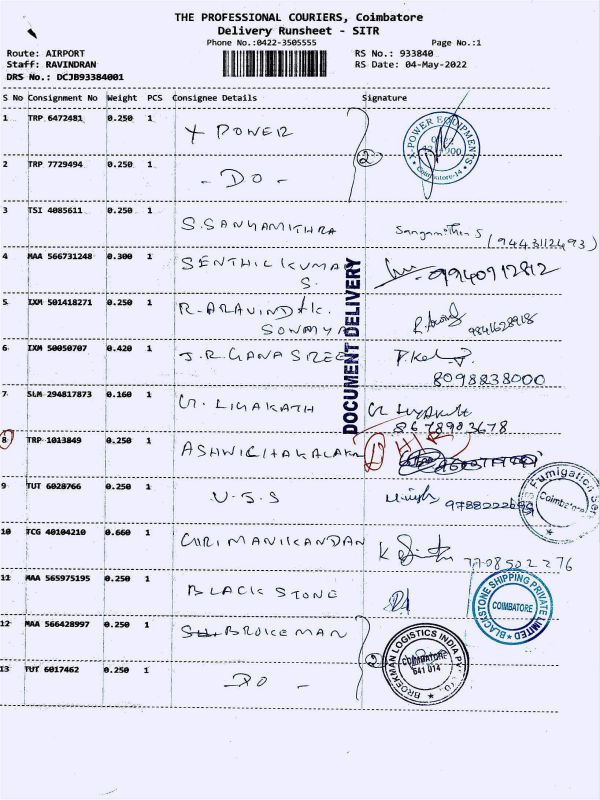 THE PROFESSIONAL COURIERS, Coimbatore
Delivery Runsheet - SITR
Phone No.:0422-3505555 Page No.:1
Route: AIRPORT RS No.: 933840
Staff: RAVINDRAN RS Date: 04-May-2022
DRS No.: DCJB93384001
S No Consignment No Weight PCS Consignee Details Signature
1 TRP 6472481 0.250 1 X POWER
X-POWER EQUIPMENTS
Coimbatore-14
2 TRP 7729494 0.250 1 - DO - 2
3 TSI 4085611 0.250 1 S.SANGAMITHRA (9443112493)
4 MAA 566731248 0.300 1 SENTHILKUMAR S. 9940912812
5 IXM 501418271 0.250 1 R-ARAVINDH K.
SOWMYA 9841628918
6 IXM 50050707 0.420 1 J.R.GANASREE
8098838000
DOCUMENT DELIVERY
7 SLM 294817873 0.160 1 G. LIYAKATH
8678983678
8 TRP 1013849 0.250 1 ASHWICHAKALAKA 1
9 TUT 6028766 0.250 1 U.S.S
Fumigation
Coimbatore
10 TCG 40104210 0.660 1 GURIMANIKANDAN 7708502276
11 MAA 565975195 0.250 1 BLACK STONE
BLACKSTONE SHIPPING PRIVATE LIMITED
COIMBATORE
12 MAA 566428997 0.250 1 BROKEMAN
BROEKMAN LOGISTICS INDIA PVT. LTD
COIMBATORE
641 014
13 TUT 6017462 0.250 1 - DO - 2